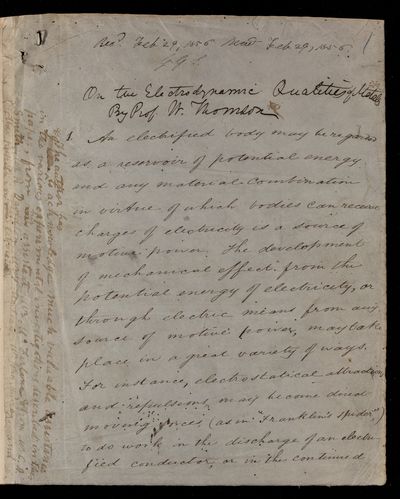 Recd. Feb 29, 1856 Read Feb 29, 1856.
On the Electrodynamic Qualities of Metals
By Prof. W. Thomson
1. An electrified body may be regarded
as a reservoir of potential energy
and any material combination
in virtue of which bodies can receive
charges of electricity is a source of
motive power. The development
of mechanical effect from the
potential energy of electricity, or
through electric means from any
source of motive power, may take
place in a great variety of ways.
For instance, electrostatical attractions
and repulsions may become direct
moving forces (as in "Franklin's spider")
to do work in the discharge of an electri-
fied conductor, or in the continued
The author has
to acknowledge much valuable assistance
in the various experiments